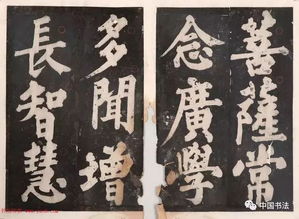 菩薩常
念廣學
多聞增
長智慧
中国书法